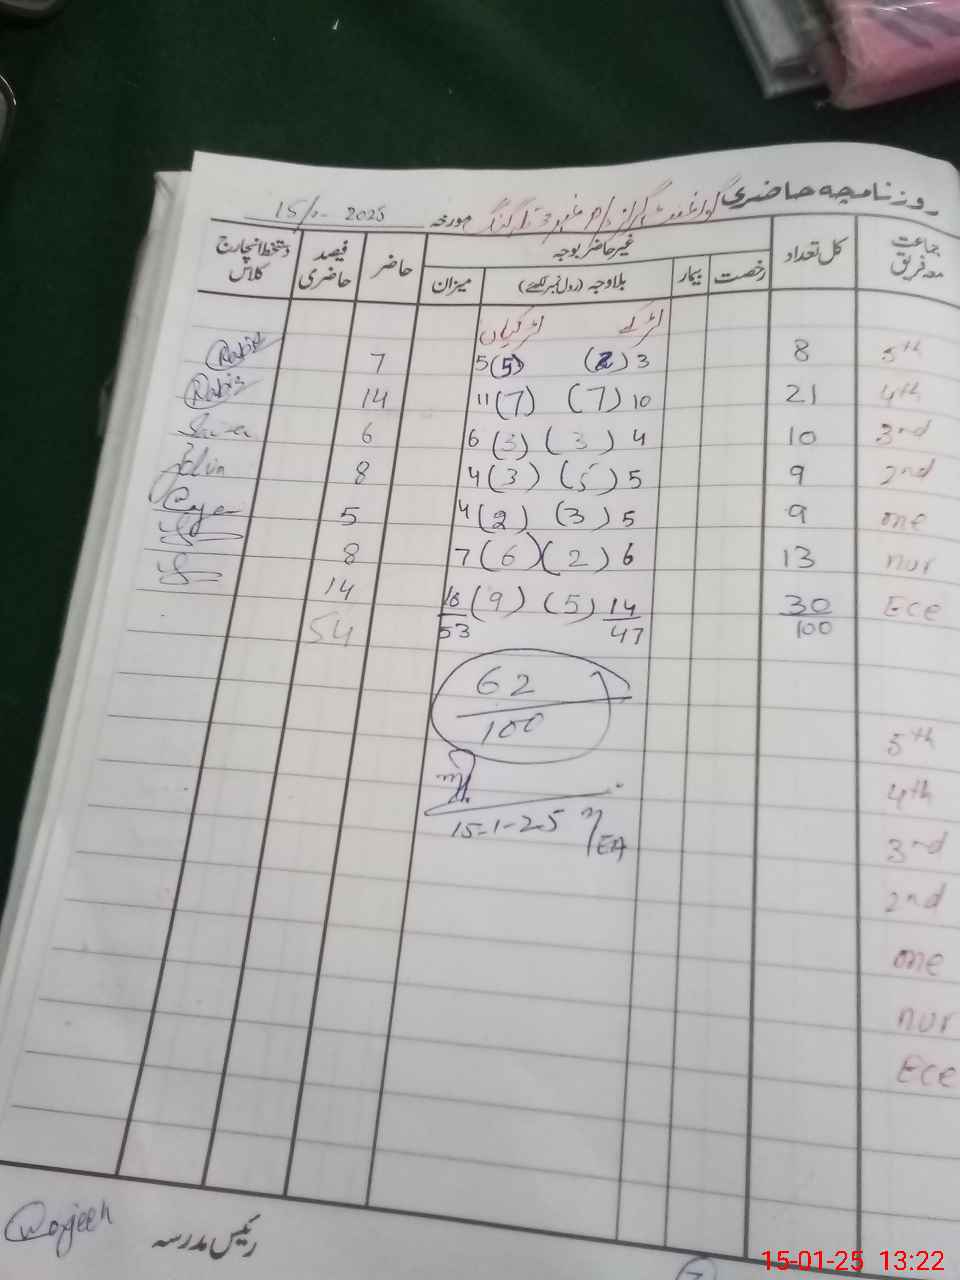 روزنامچہ حاضری گورنمنٹ گرلز مورخہ 15/1- 2025
جماعت معہ فریق کل تعداد غیر حاضر بوجہ حاضر فیصد حاضری دستخط انچارج کلاس
رخصت بیمار بلاوجہ (رول نمبر لکھئے) میزان
لڑکے لڑکیاں
5th 8 3 (2) 5 (5) 7
4th 21 10 (7) 11 (7) 14
3rd 10 4 (3) 6 (3) 6
2nd 9 5 (5) 4 (3) 8
one 9 5 (3) 4 (2) 5
nur 13 6 (2) 7 (6) 8
Ece 30 14 (5) 16 (9) 14
100 47 53 54
62
100
5th
15-1-25
EA
4th
3rd
2nd
one
nur
Ece
رئیس مدرسہ
15-01-25 13:22